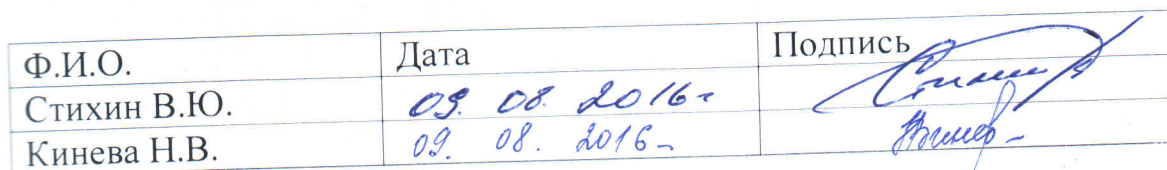 Ф.И.О. Дата Подпись
Стихин В.Ю. 09. 08. 2016г
Кинева Н.В. 09. 08. 2016